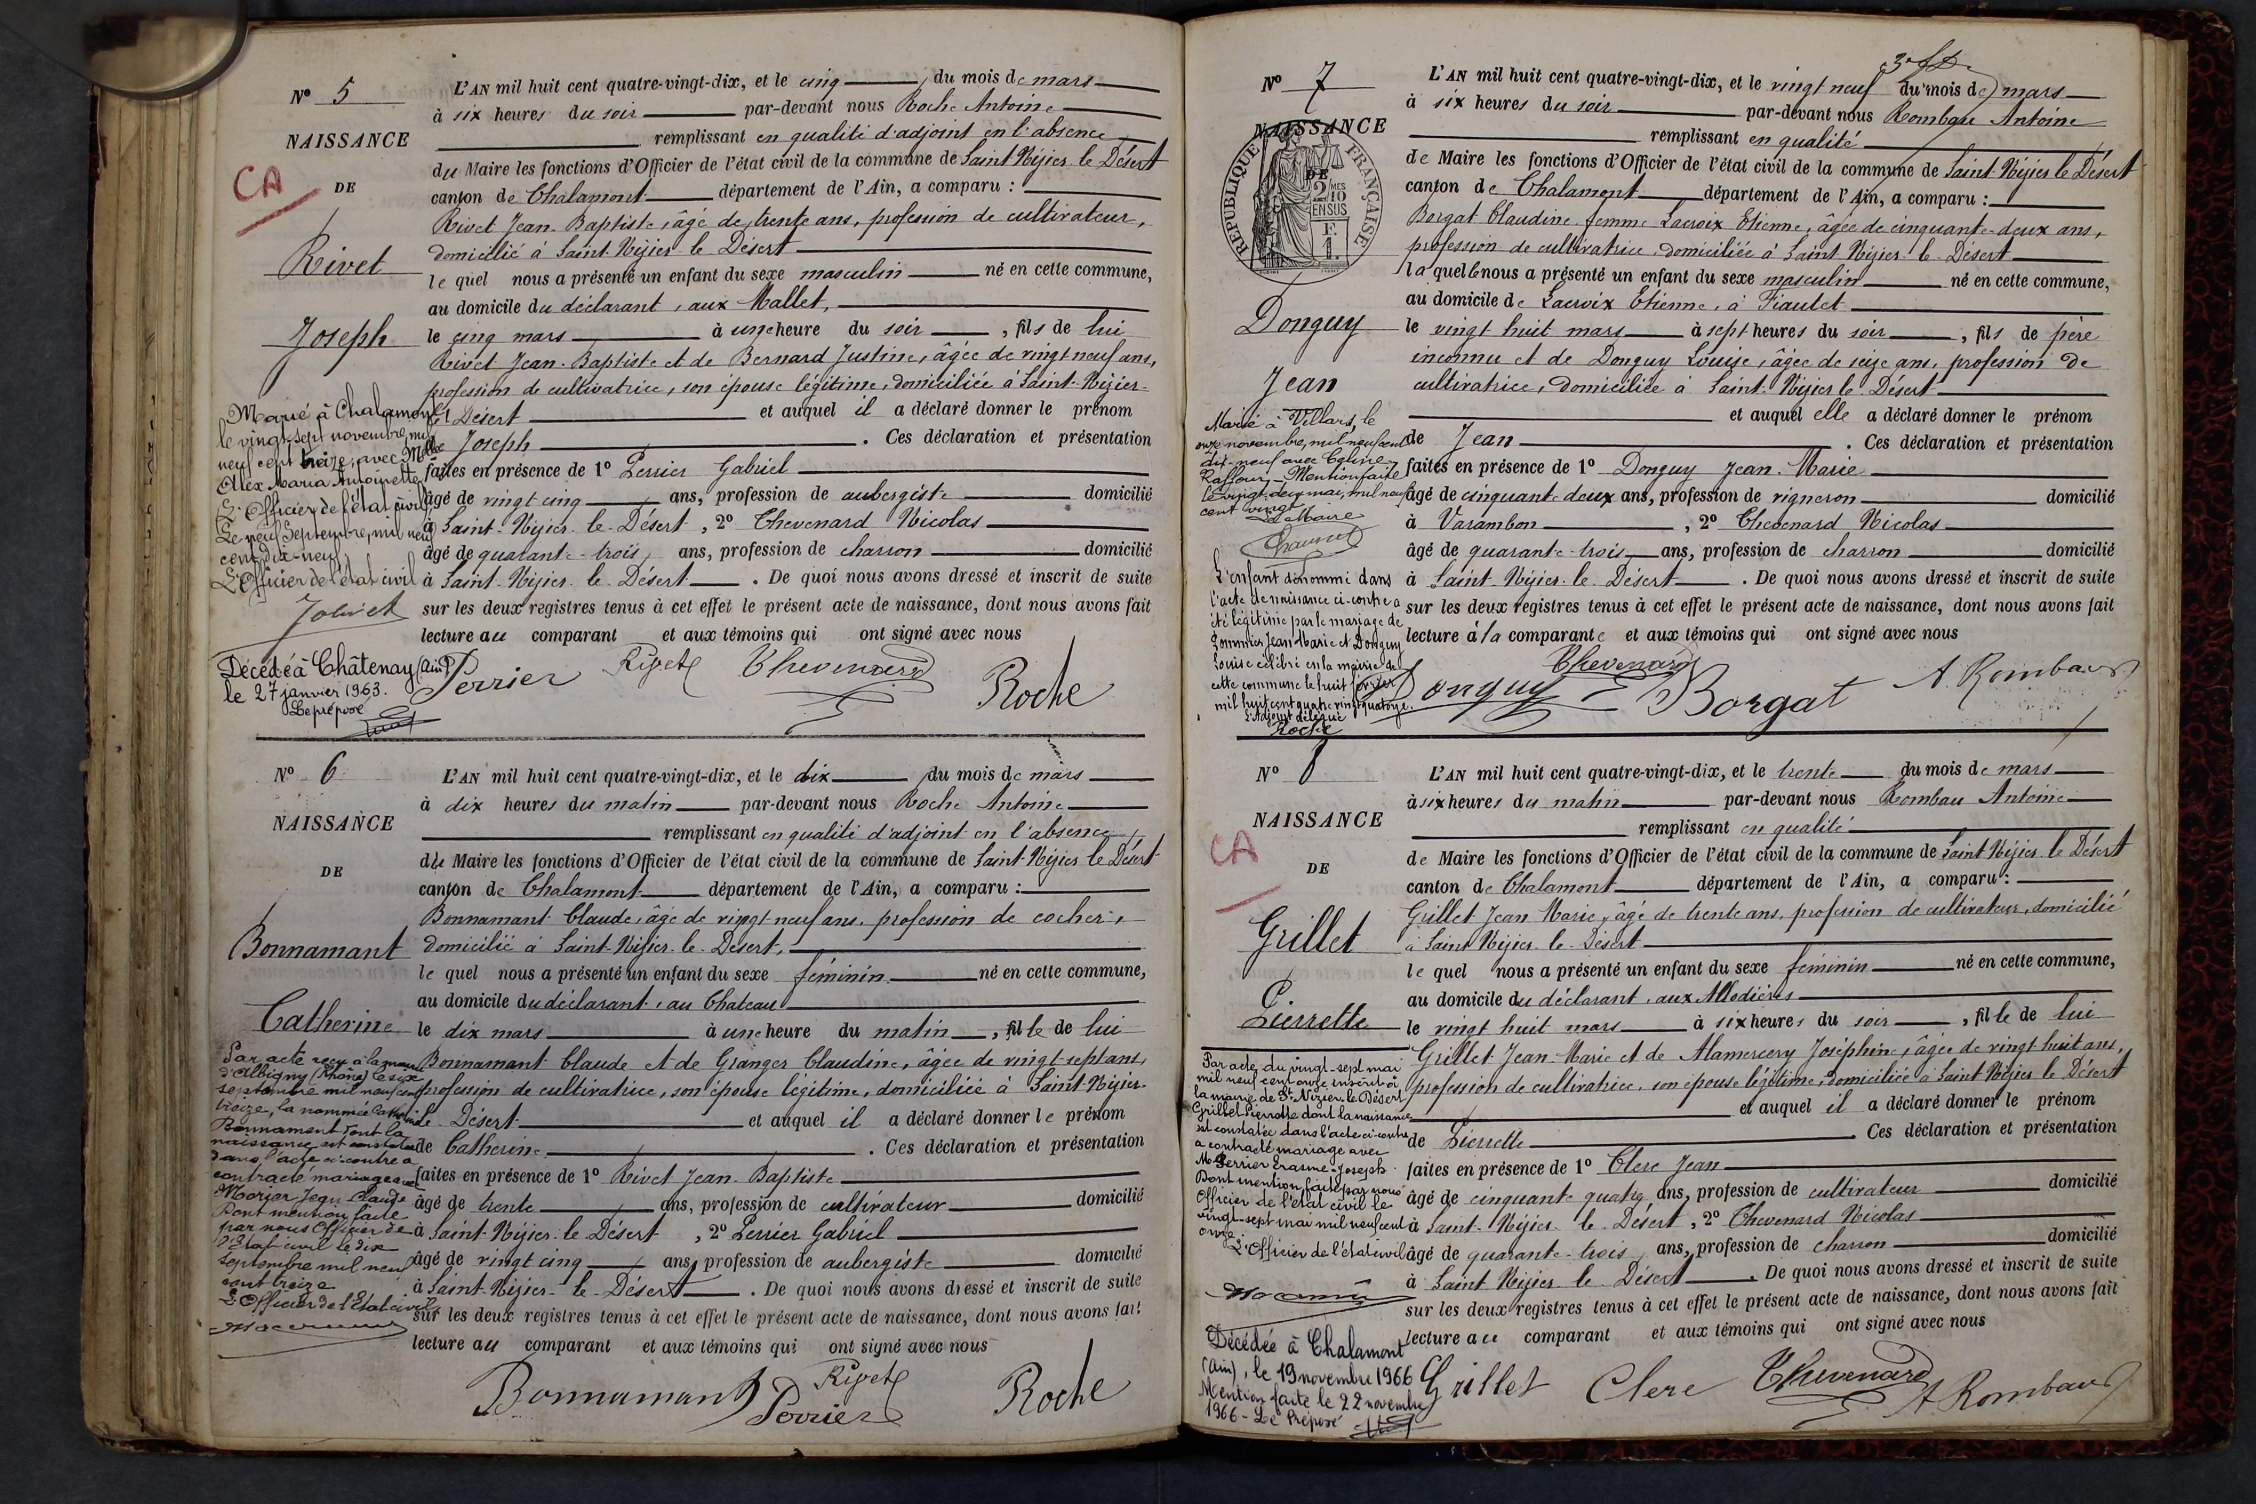 N° 5
NAISSANCE
DE
CA
Rivet
Joseph
L'AN mil huit cent quatre-vingt-dix, et le cinq du mois de mars
à six heures du soir par-devant nous Roche Antoine
remplissant en qualité d'adjoint en l'absence
du Maire les fonctions d'Officier de l'état civil de la commune de Saint-Nizier le Désert
canton de Chalamont département de l'Ain, a comparu :
Rivet Jean-Baptiste, âgé de trente ans, profession de cultivateur,
domicilié à Saint-Nizier-le-Désert
lequel nous a présenté un enfant du sexe masculin né en cette commune,
au domicile du déclarant, aux Mallet,
le cinq mars à une heure du soir, fils de lui
Rivet Jean-Baptiste et de Bernard Justine, âgée de vingt neuf ans,
profession de cultivatrice, son épouse légitime, domiciliée à Saint-Nizier-
le Désert et auquel il a déclaré donner le prénom
de Joseph. Ces déclaration et présentation
faites en présence de 1° Perrier Gabriel
âgé de vingt cinq ans, profession de aubergiste domicilié
à Saint-Nizier-le-Désert, 2° Thevenard Nicolas
âgé de quarante-trois, ans, profession de charron domicilié
à Saint-Nizier-le-Désert. De quoi nous avons dressé et inscrit de suite
sur les deux registres tenus à cet effet le présent acte de naissance, dont nous avons fait
lecture au comparant et aux témoins qui ont signé avec nous
Perrier Rivet Thevenard Roche
Marié à Chalamont
le vingt-sept novembre, mil
neuf cent treize, avec Melle
Alex Maria Antoinette
L'Officier de l'état civil
Le neuf Septembre, mil neuf
cent dix-neuf
L'Officier de l'état civil
Décédé à Châtenay (Ain)
le 27 janvier 1963.
Le préposé
N° 6
NAISSANCE
DE
Bonnamant
Catherine
L'AN mil huit cent quatre-vingt-dix, et le dix du mois de mars
à dix heures du matin par-devant nous Roche Antoine
remplissant en qualité d'adjoint en l'absence
du Maire les fonctions d'Officier de l'état civil de la commune de Saint-Nizier le Désert
canton de Chalamont département de l'Ain, a comparu :
Bonnamant Claude, âgé de vingt neuf ans, profession de cocher,
domicilié à Saint-Nizier-le-Désert,
lequel nous a présenté un enfant du sexe féminin né en cette commune,
au domicile du déclarant, au Chateau
le dix mars à une heure du matin, fille de lui
Bonnamant Claude et de Granger Claudine, âgée de vingt-sept ans,
profession de cultivatrice, son épouse légitime, domiciliée à Saint-Nizier-
le Désert et auquel il a déclaré donner le prénom
de Catherine. Ces déclaration et présentation
faites en présence de 1° Rivet Jean-Baptiste
âgé de trente ans, profession de cultivateur domicilié
à Saint-Nizier-le Désert, 2° Perrier Gabriel
âgé de vingt cinq ans, profession de aubergiste domicilié
à Saint-Nizier-le-Désert. De quoi nous avons dressé et inscrit de suite
sur les deux registres tenus à cet effet le présent acte de naissance, dont nous avons fait
lecture au comparant et aux témoins qui ont signé avec nous
Bonnamant Perrier Rivet Roche
Par acte reçu à la mairie
d'Albigny (Rhône) le six
septembre mil neuf cent
treize, la nommée Catherine
Bonnamant dont la
naissance est constatée
dans l'acte ci-contre a
contracté mariage avec
Morier Jean Claude
Dont mention faite
par nous Officier de
l'Etat civil le dix
septembre mil neuf
cent treize
L'Officier de l'Etat civil
N° 7
NAISSANCE
DE
RÉPUBLIQUE FRANÇAISE
2 MES 10
EN SUS
F. 1.
Donguy
Jean
L'AN mil huit cent quatre-vingt-dix, et le vingt neuf du mois de mars
à six heures du soir par-devant nous Rombau Antoine
remplissant en qualité
de Maire les fonctions d'Officier de l'état civil de la commune de Saint-Nizier le Désert
canton de Chalamont département de l'Ain, a comparu :
Borgat Claudine femme Lacroix Etienne, âgée de cinquante-deux ans,
profession de cultivatrice, domiciliée à Saint Nizier-le-Désert
laquelle nous a présenté un enfant du sexe masculin né en cette commune,
au domicile de Lacroix Etienne, à Fiaulet
le vingt huit mars à sept heures du soir, fils de père
inconnu et de Donguy Louise, âgée de seize ans, profession de
cultivatrice, domiciliée à Saint-Nizier le Désert
et auquel elle a déclaré donner le prénom
de Jean. Ces déclaration et présentation
faites en présence de 1° Donguy Jean-Marie
âgé de cinquante deux ans, profession de vigneron domicilié
à Varambon, 2° Thevenard Nicolas
âgé de quarante-trois ans, profession de charron domicilié
à Saint-Nizier-le-Désert. De quoi nous avons dressé et inscrit de suite
sur les deux registres tenus à cet effet le présent acte de naissance, dont nous avons fait
lecture à la comparante et aux témoins qui ont signé avec nous
Donguy Thevenard Borgat A Rombau
Marié à Villars, le
onze novembre, mil neuf cent
dix-neuf avec
Mention faite
le vingt-deux mai, mil neuf
cent vingt
Le Maire
L'enfant dénommé dans
l'acte de naissance ci-contre a
été légitimé par le mariage de
Pommier Jean Marie et Donguy
Louise célébré en la mairie de
cette commune le huit février
mil huit cent quatre vingt quatorze.
L'Adjoint délégué
Roche
N° 8
NAISSANCE
DE
CA
Grillet
Pierrette
L'AN mil huit cent quatre-vingt-dix, et le trente du mois de mars
à six heures du matin par-devant nous Rombau Antoine
remplissant en qualité
de Maire les fonctions d'Officier de l'état civil de la commune de Saint Nizier le Désert
canton de Chalamont département de l'Ain, a comparu :
Grillet Jean Marie, âgé de trente ans, profession de cultivateur, domicilié
à Saint Nizier-le-Désert
lequel nous a présenté un enfant du sexe féminin né en cette commune,
au domicile du déclarant, aux
le vingt huit mars à six heures du soir, fille de lui
Grillet Jean-Marie et de Alamercery Joséphine, âgée de vingt huit ans,
profession de cultivatrice, son épouse légitime, domiciliée à Saint Nizier le Désert
et auquel il a déclaré donner le prénom
de Pierrette. Ces déclaration et présentation
faites en présence de 1° Clerc Jean
âgé de cinquante quatre ans, profession de cultivateur domicilié
à Saint-Nizier-le Désert, 2° Thevenard Nicolas
âgé de quarante-trois, ans, profession de charron domicilié
à Saint Nizier le Désert. De quoi nous avons dressé et inscrit de suite
sur les deux registres tenus à cet effet le présent acte de naissance, dont nous avons fait
lecture au comparant et aux témoins qui ont signé avec nous
Grillet Clerc Thevenard A Rombau
Par acte du vingt-sept mai
mil neuf cent onze inscrit à
la mairie de St Nizier-le Désert
Grillet Pierrette dont la naissance
est constatée dans l'acte ci-contre
a contracté mariage avec
Mr Perrier Erasme-Joseph.
Dont mention faite par nous
Officier de l'état civil le
vingt-sept mai mil neuf cent
onze
L'Officier de l'état civil
Décédée à Chalamont
(Ain), le 19 novembre 1966
Mention faite le 22 novembre
1966 - Le Préposé